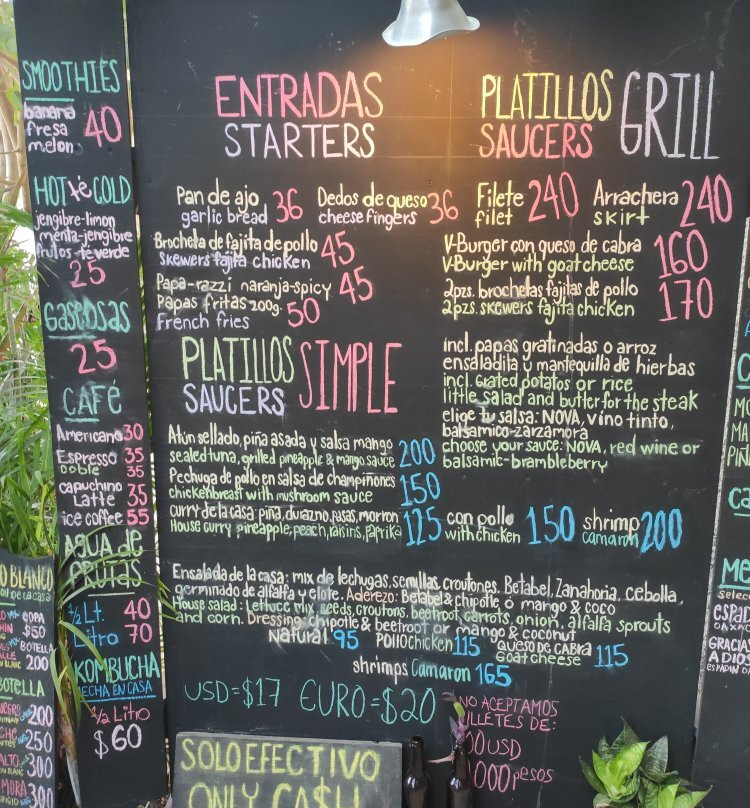 SMOOTHIES
banana
fresa 40
melon
HOT té COLD
jengibre-limon
menta-jengibre
frutos-té verde
25
Gaseosas
25
CAFÉ
Americano 30
Espresso 35
Doble 35
capuchino
Latte 35
ice coffee 55
AGUA de
FRUTAS
1/2 Lt. 40
Litro 70
KOMBUCHA
HECHA EN CASA
1/2 Litro
$60
ENTRADAS
STARTERS
Pan de ajo 36
garlic bread
Dedos de queso 36
cheese fingers
Brocheta de fajita de pollo 45
skewers fajita chicken
Papa-razzi naranja-spicy 45
Papas fritas 200g. 50
French fries
PLATILLOS SIMPLE
SAUCERS
Atún sellado, piña asada y salsa mango 200
sealed tuna, grilled pineapple & mango sauce
Pechuga de pollo en salsa de champiñones 150
chickenbreast with mushroom sauce
curry de la casa: piña, durazno, pasas, morron 125
House curry: pineapple, peach, raisins, paprika
con pollo 150
with chicken
shrimp 200
camaron
PLATILLOS GRILL
SAUCERS
Filete 240
filet
Arrachera 240
skirt
V-Burger con queso de cabra 160
V-Burger with goat cheese
2pzs. brochetas fajitas de pollo 170
2pzs. skewers fajita chicken
incl. papas gratinadas o arroz
ensaladita y mantequilla de hierbas
incl. grated potatos or rice
little salad and butter for the steak
elige tu salsa: NOVA, vino tinto,
balsamico-zarzamora
choose your sauce: NOVA, red wine or
balsamic-brambleberry
Ensalada de la casa: mix de lechugas, semillas, croutones. Betabel, Zanahoria, cebolla,
germinado de alfalfa y elote. Aderezo: Betabel & chipotle ó mango & coco
House salad: Lettuce mix, seeds, croutons, beetroot, carrots, onion, alfalfa sprouts
and corn. Dressing: chipotle & beetroot or mango & coconut
Natural 95 POLLO chicken 115 QUESO DE CABRA 115
Goat cheese
shrimps Camaron 165
USD=$17 EURO=$20
NO ACEPTAMOS
BILLETES DE:
USD
pesos
SOLO EFECTIVO
ONLY CA$H
O BLANCO
DE LA CASA
COPA
$50
BOTELLA
200
BOTELLA
200
250
300
MORA 300